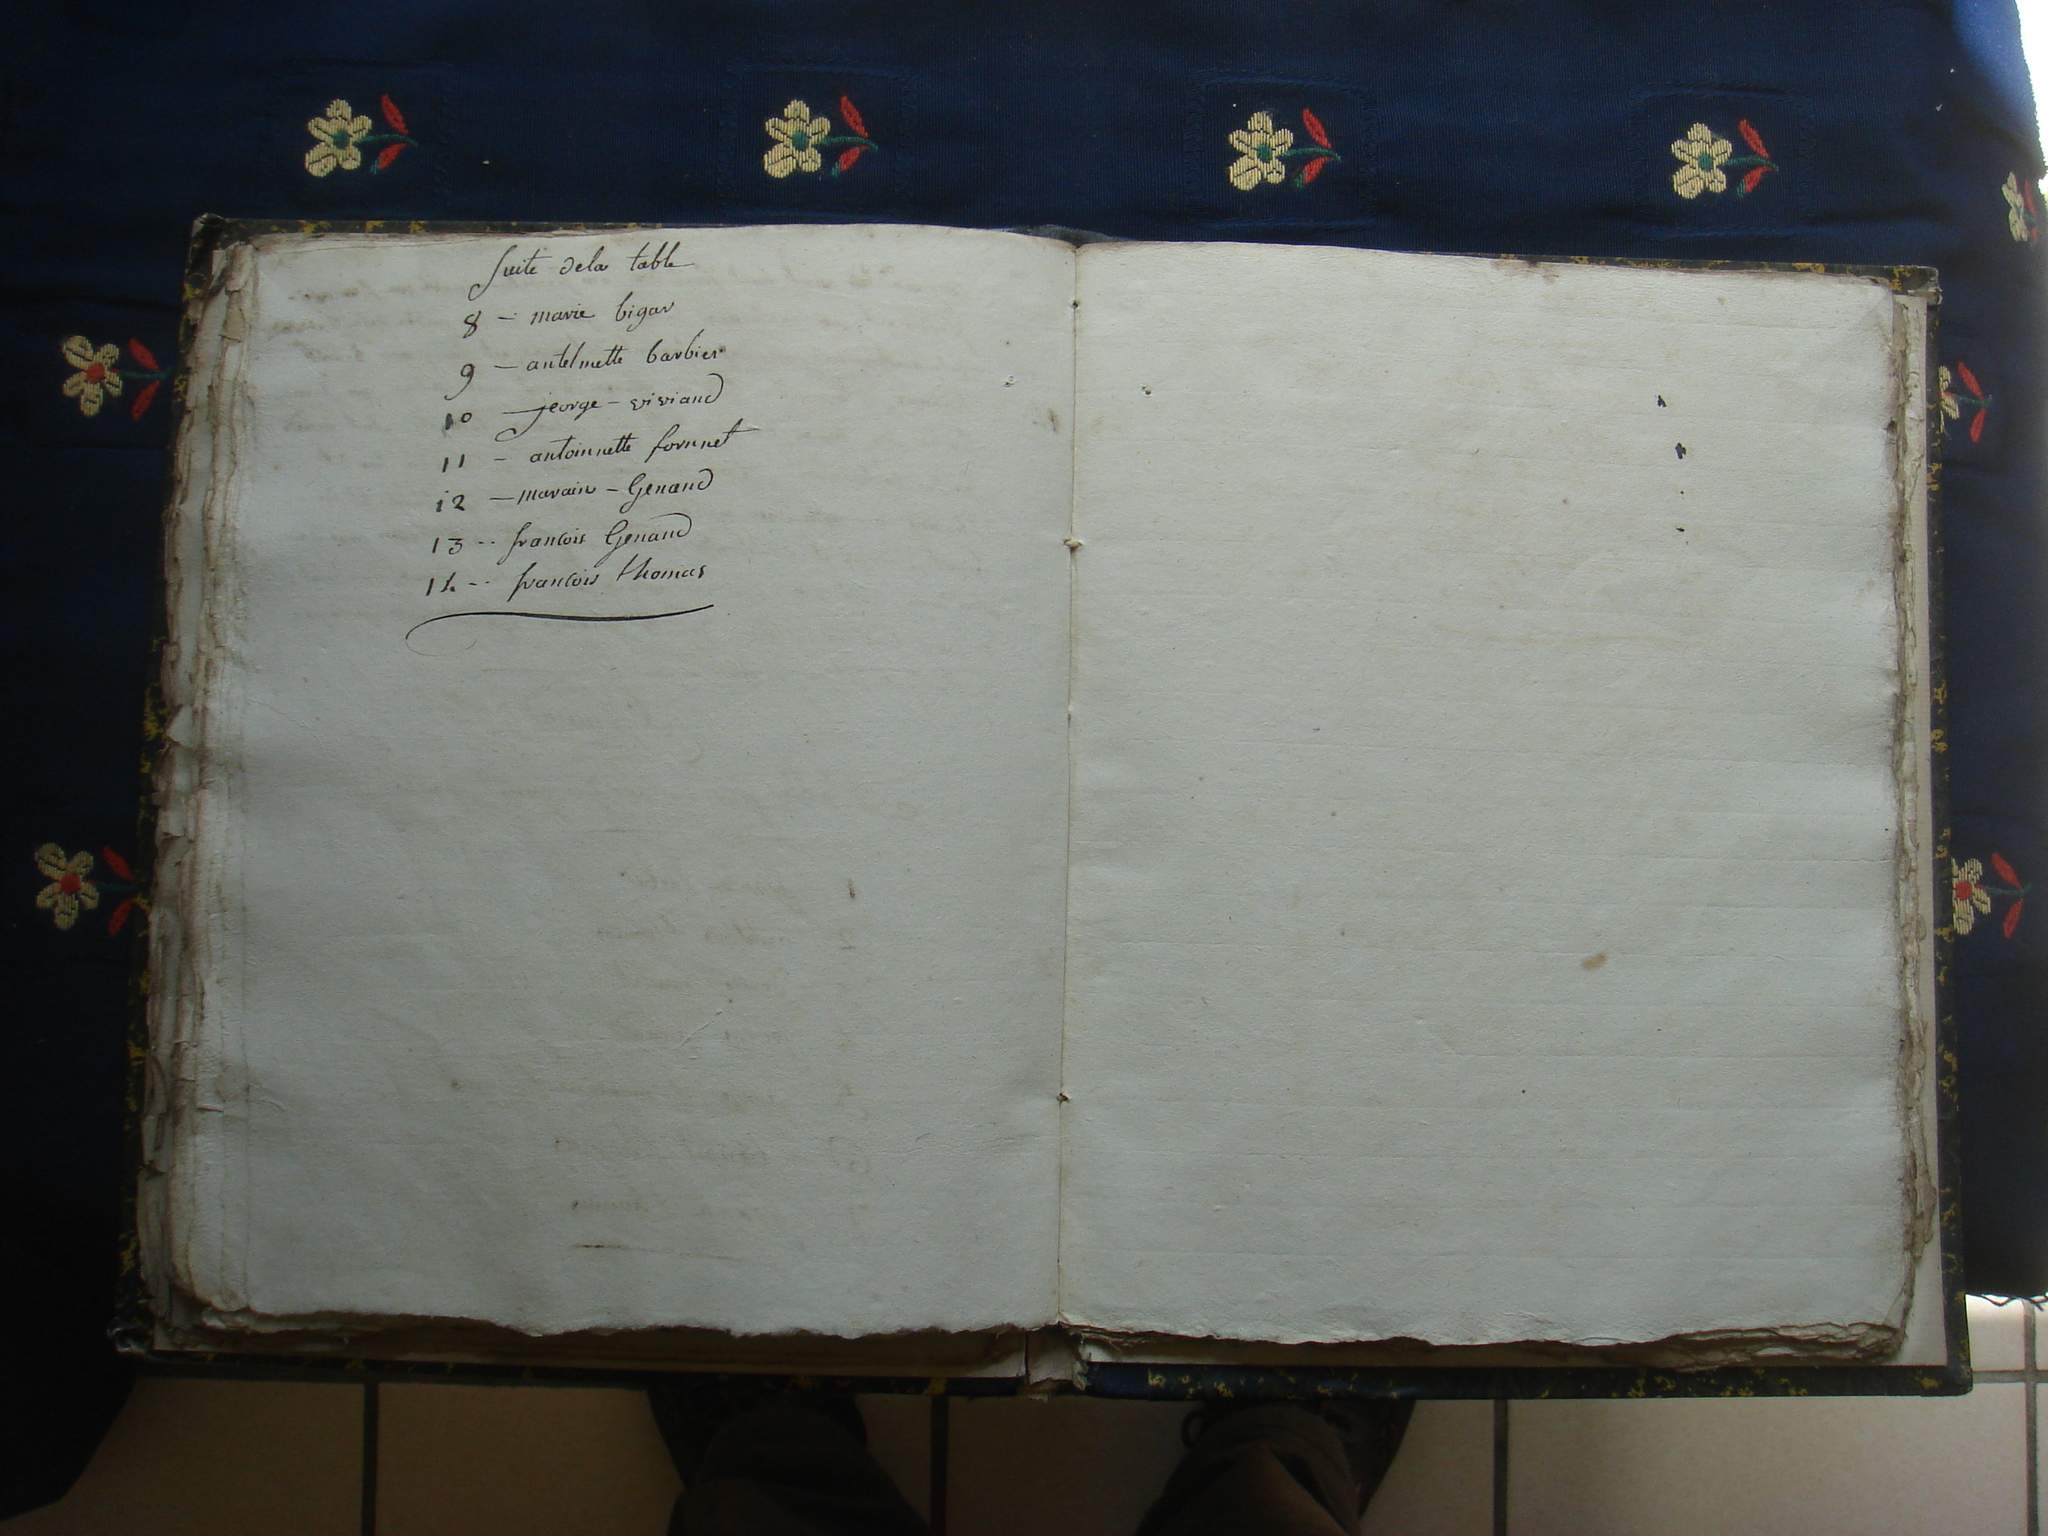 Suite dela table
8 - marie bigar
9 - antelmette barbier
10 - jeorge - viviand
11 - antoinnette fornnet
12 - marain - Genand
13 - francois Genand
14 - francois thomas